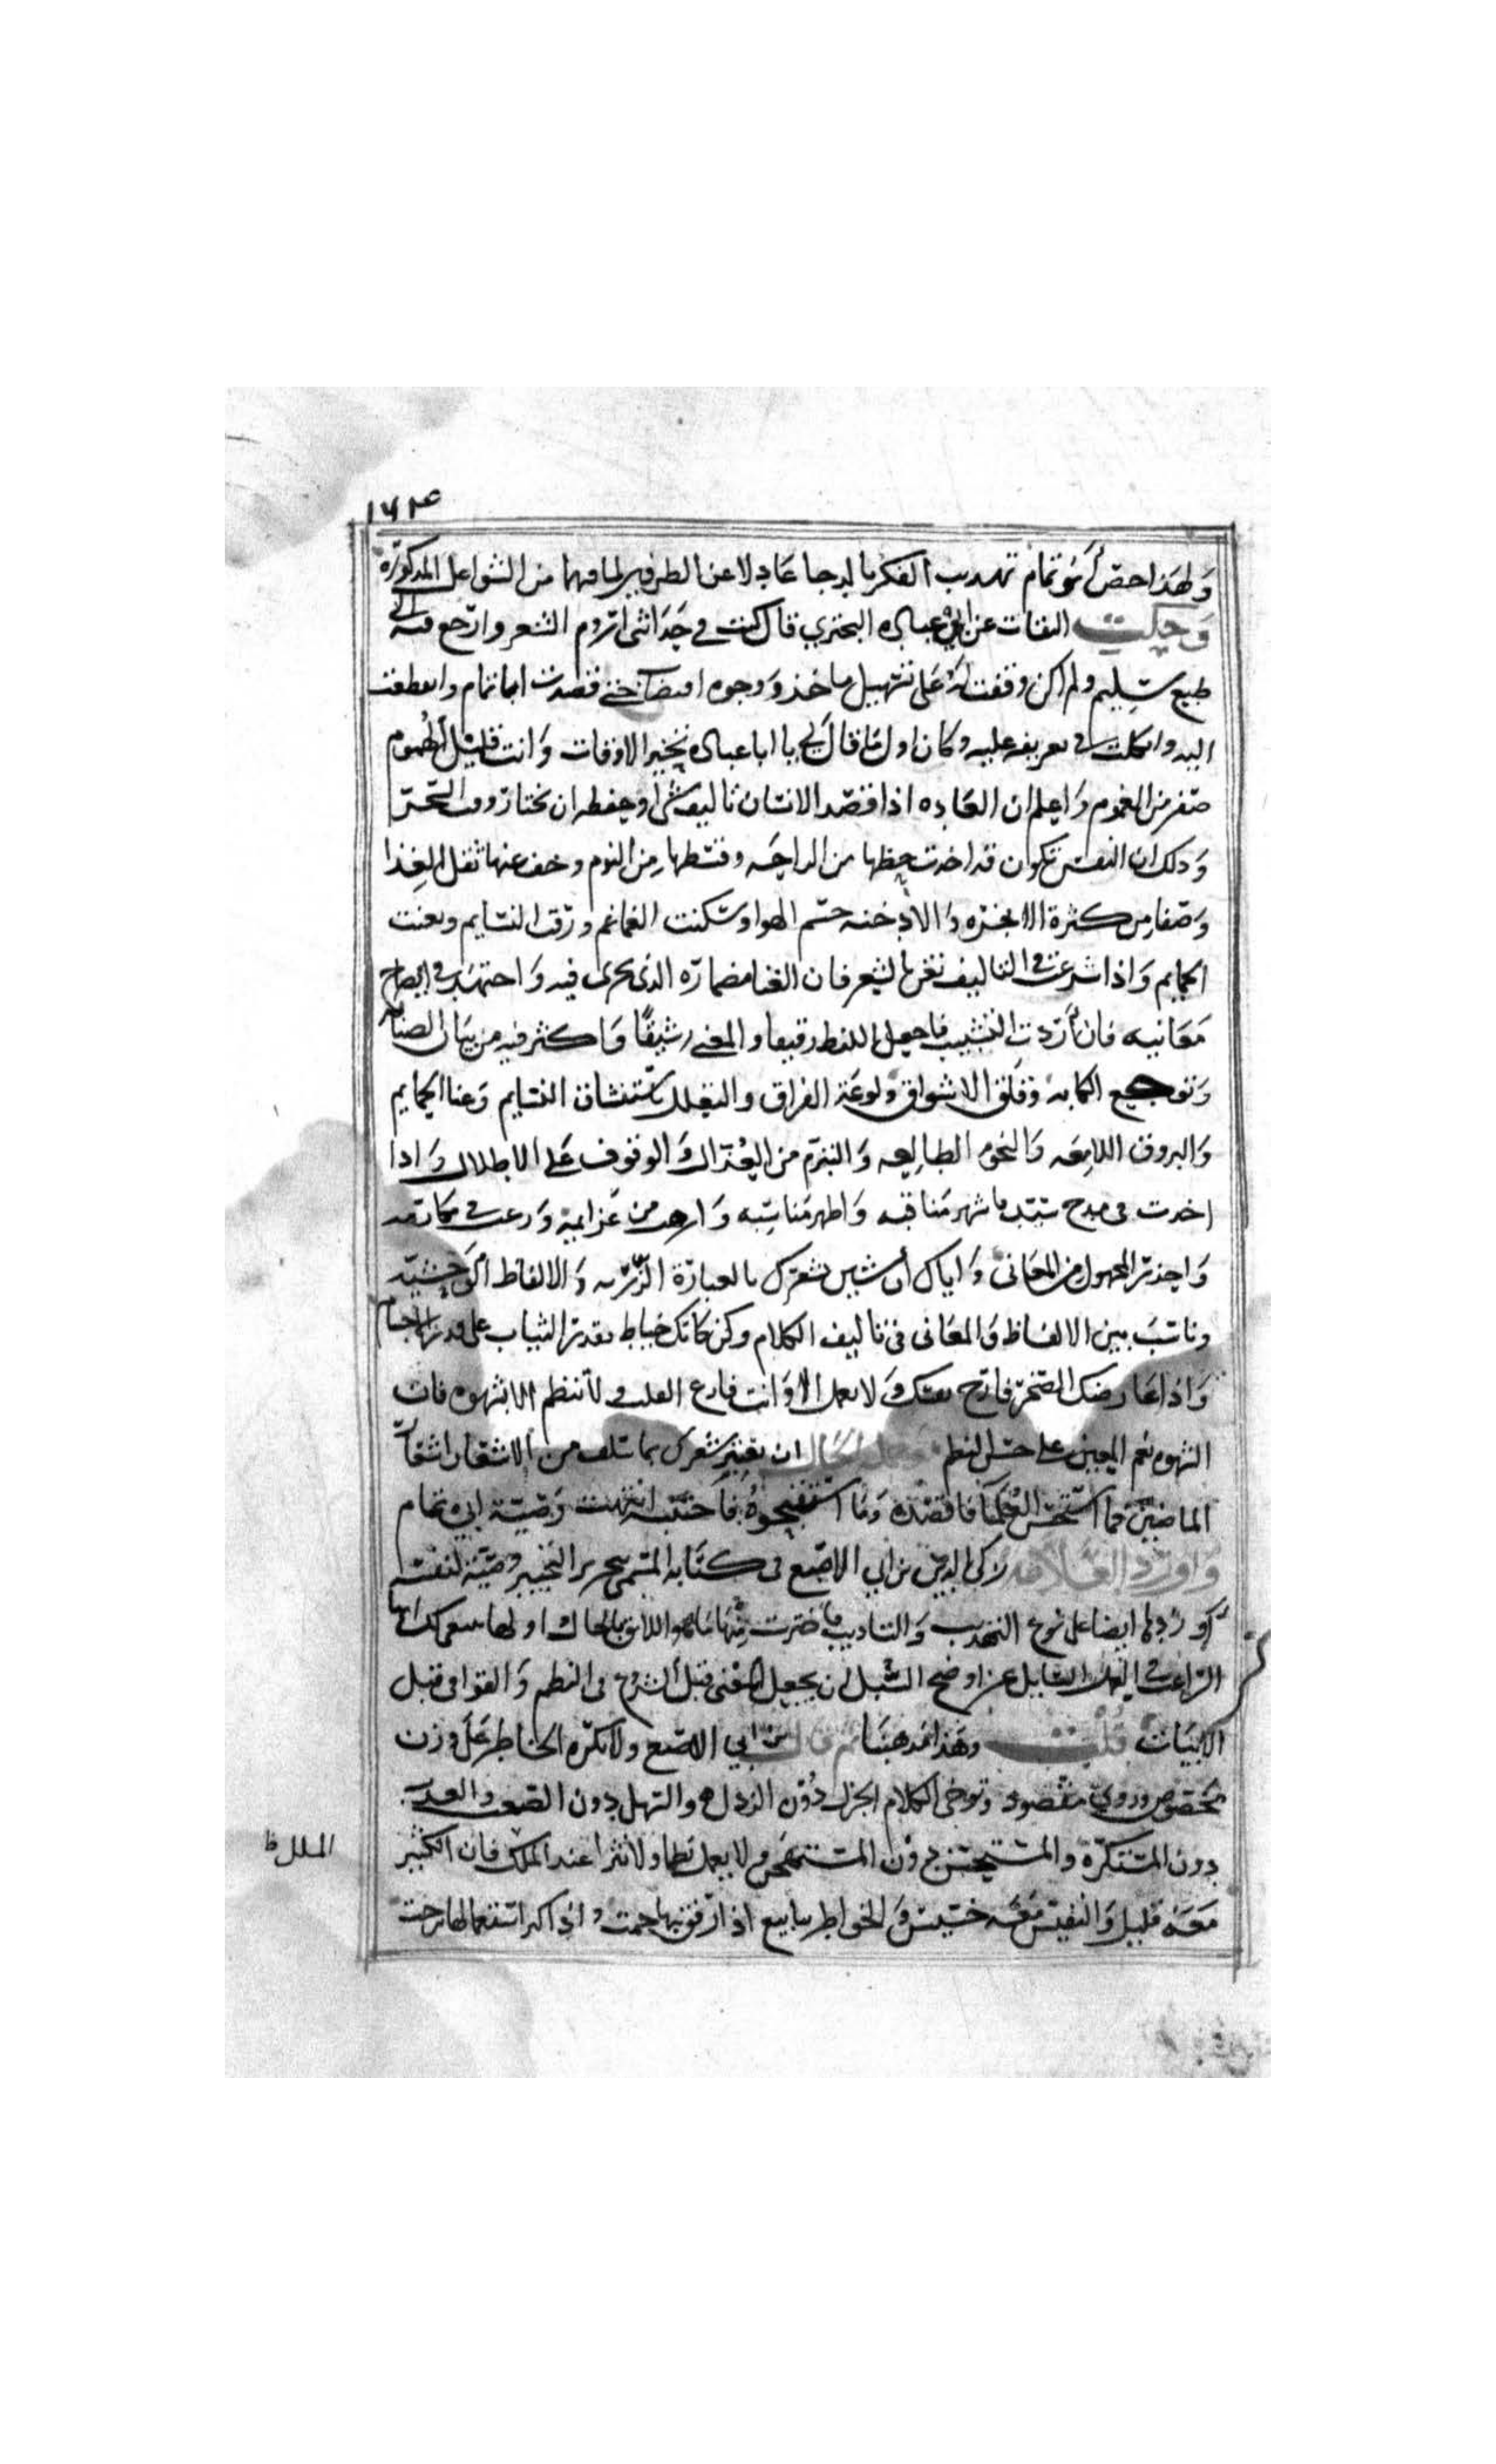 ١٦٢٤
ولهذا خص أبو تمام تهذيب الفكر بالدجا عادلا عن الطرفين لما فيهما من الشواغل المذكورة
وحكت الثقات عن ابي عباده البحتري قال كنت في حداثتي اروم الشعر وارجع فيه الى
طبع سليم ولم اكن وقفت له على تسهيل ماخذ ووجوه اقتضاب حتى قصدت ابا تمام وانقطعت
اليه واتكلت في تعريفه عليه وكان اول ما قال لي يا ابا عباده تخير الاوقات وانت قليل الهموم
صفر من الغموم واعلم ان العاده اذا قصد الانسان تاليف شي او حفظه ان يختار وقت السحر
وذلك ان النفس تكون قد اخذت حظها من الراحه وقسطها من النوم وخف عنها ثقل الغذا
وصفا من كثرة الابخره والادخنه جسم الهوا وسكنت الغماغم ورقت النسايم وتغنت
الحمايم واذا شرعت في التاليف تغن بالشعر فان الغنا مضماره الذى يجرى فيه واجتهد في ايضاح
معانيه فان أردت التشبيب فاجعل اللفظ رقيقا والمعنى رشيقًا واكثر فيه من بيان الصبابه
وتوجع الكابة وقلق الاشواق ولوعة الفراق والتعلل باستنشاق النسايم وغنا الحمايم
والبروق اللامعه والنجوم الطالعه والتبرم من العذال والوقوف على الاطلال واذا
اخذت فى مدح سيد فاشهر مناقبه واظهر مناسبه وارهب من عزايمه ورغب في مكارمه
واحذر المجهول من المعانى واياك أن تشين شعرك بالعبارة الزريه والالفاظ الوحشيه
وناسب بين الالفاظ والمعانى فى تاليف الكلام وكن كانك خياط يقدر الثياب على مقدار الاجسام
واذا عارضك الضجر فارح نفسك ولا تعمل الا وانت فارغ القلب ولا تنظم الا بشهوه فان
الشهوه نعم المعين على حسن النظم وجملة الحال ان تعتبر شعرك بما سلف من الاشعار اشعار
الماضين فما استحسن العلما فاقصده وما استقبحوه فاجتنبه انتهت وصية ابي تمام
واورد العلامه زكى الدين بن ابي الاصبع فى كتابه المسمى بتحرير التحبير وصية لنفسه
أوردها ايضا على نوع التهذيب والتاديب فاخترت منها ما هو اللائق بالحال اولها
الراغب في العمل السايل عن اوضح السبل ان يحصل المعنى قبل الشروع فى النظم والقوافى قبل
الابيات قلت وهذا مذهبنا ثم قال ابن ابي الاصبع ولا تكره الخاطر على وزن
مخصوص وروي مقصود وتوخى الكلام الجزل دون الرذل والسهل دون الصعب والعذب
دون المستكرة والمستحسن دون المستهجن ولا يعمل نظما ولا نثرا عند الملل فان الكثير
الملل ظ
معه قليل والنفيس معه خسيس والخواطر ينابيع اذا رفق بها جمت واذا كثر استعمالها نزحت